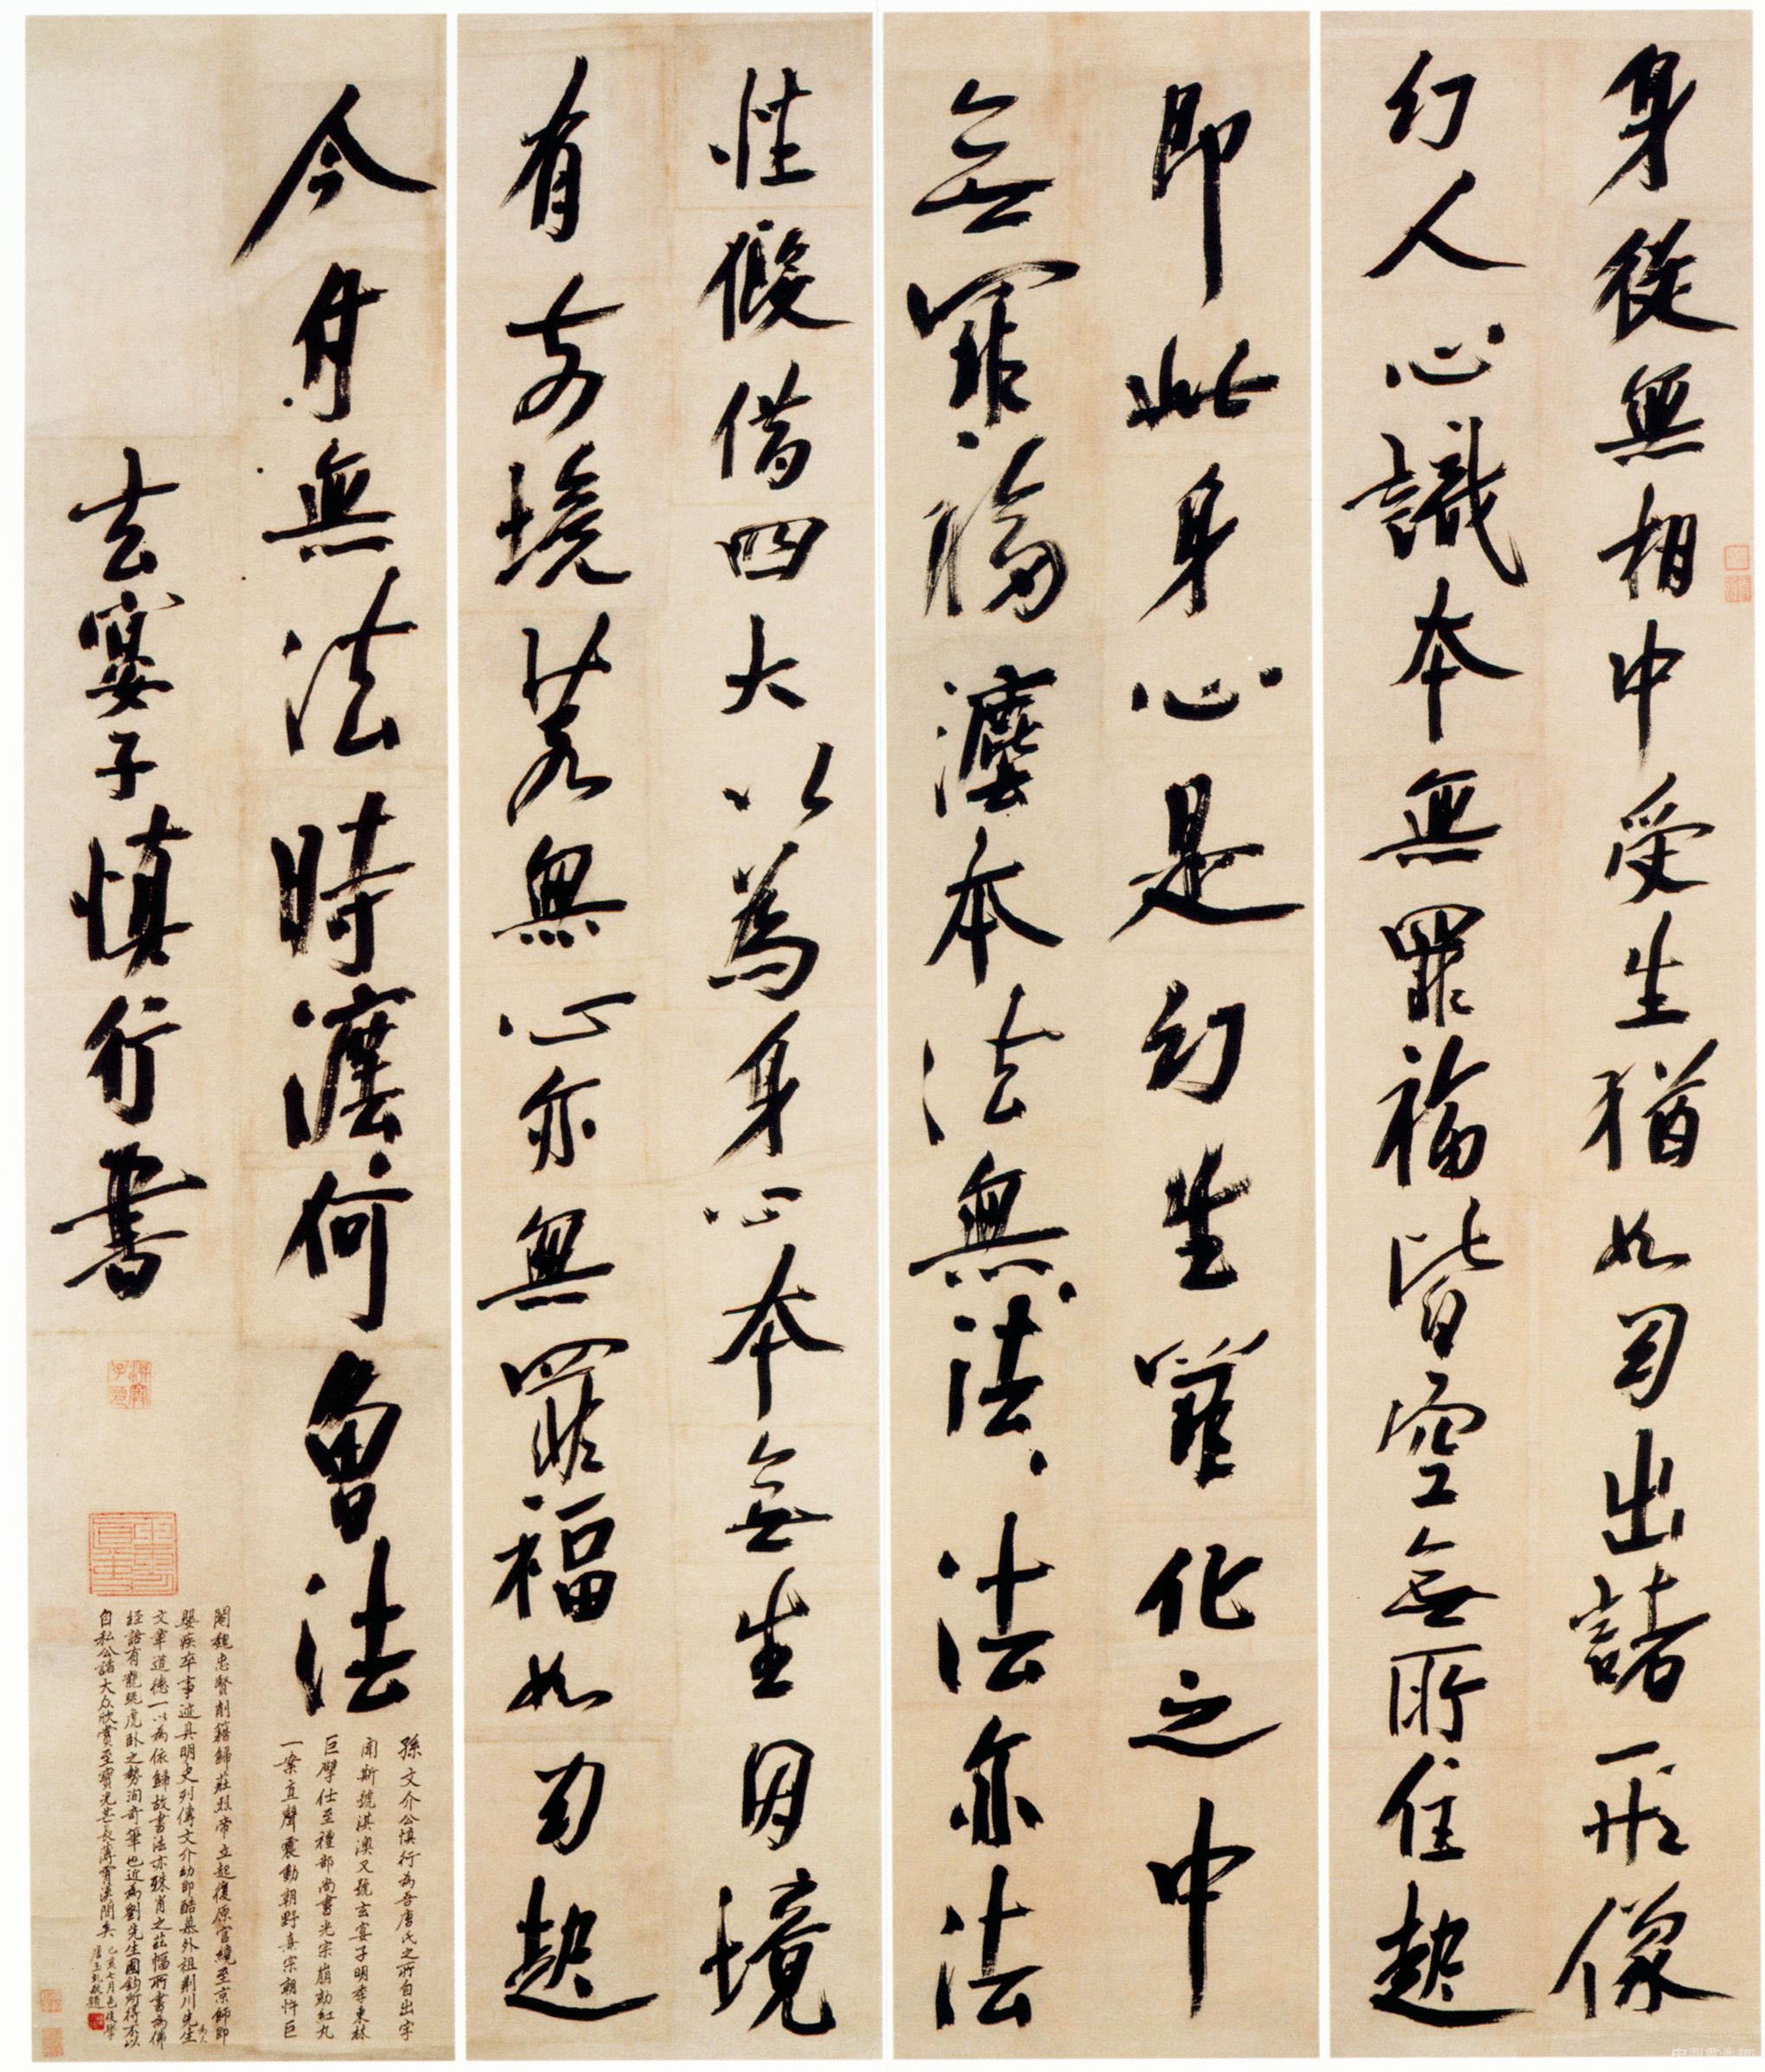 身從無相中受生猶如幻出諸形像
幻人心識本無罪福皆空無所住起
即此身心是幻生罪化之中
無罪福灋本法無、法、法亦法
性假借四大以為身心本無生因境
有前境若無心亦無罪福如幻起
今付無法時灋何曾法
玄宴子慎行書
孫文介公慎行為吾唐氏之所自出字
聞斯號淇澳又號玄宴子明季東林
巨擘仕至禮部尚書光宗崩劾紅丸
一案直聲震動朝野熹宗朝忤巨
閹魏忠賢削籍歸莊烈帝立起復原官纔至京師即
嬰疾卒事迹具明史列傳文介幼即酷慕外祖荊川先生為人
文章道德一以為依歸故書法亦殊肖之茲幅所書為佛
經語有龍跳虎臥之勢洵奇筆也近為劉先生國鈞所得不以
自私公諸大众欣賞至寶光芒長薄霄漢間矣 己亥七月邑後學
唐玉虬敬題